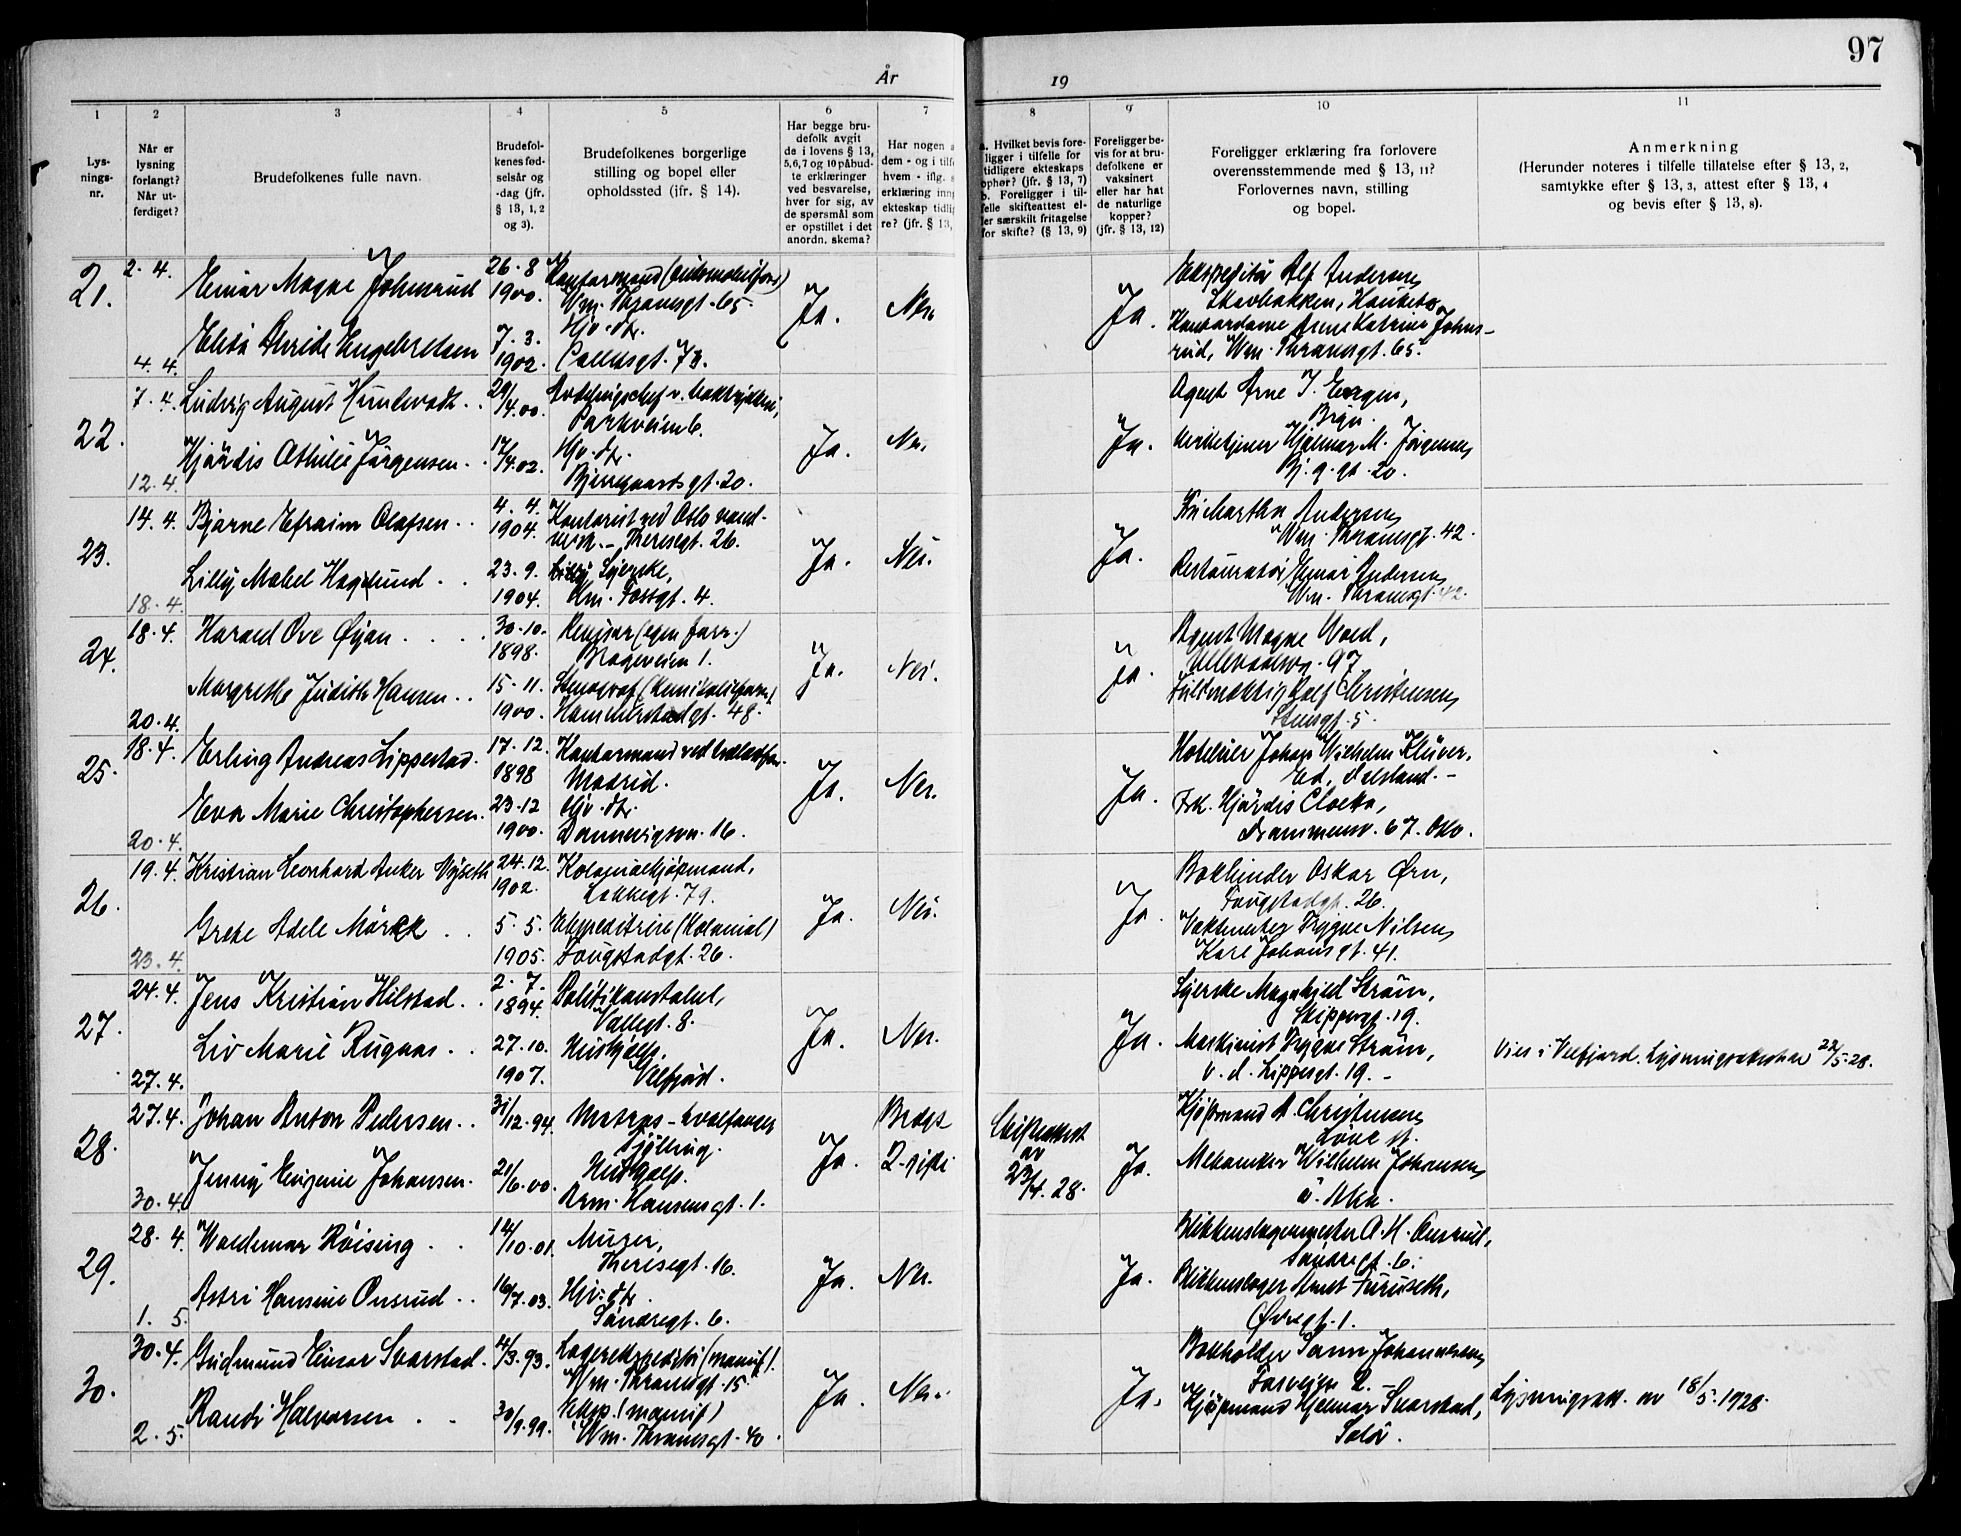 97
År
19
1
2
3
4
5
6
7
8
9
10
11
Lys-
nings-
nr.
Når er
lysning
forlangt?
Når ut-
ferdiget?
Brudefolkenes fulle navn.
Brudefol-
kenes fød-
selsår og
-dag (jfr.
§ 13, 1, 2
og 3).
Brudefolkenes borgerlige
stilling og bopel eller
opholdssted (jfr. § 14).
Har begge bru-
defolk avgit
de i lovens § 13,
5,6,7 og 10 påbud-
te erklæringer
ved besvarelse,
hver for sig, av
de spørsmål som
er opstillet i det
anordn. skema?
Har nogen
dem - og i tilf
hvem - iflg.
erklæring inng
ekteskap tidlig
re? (jfr. § 13,
a. Hvilket bevis fore-
ligger i tilfelle for
tidligere ekteskaps
ophør? (jfr. § 13, 7)
b. Foreligger i til-
felle skifteattest el-
ler særskilt fritagelse
for skifte? (§ 13, 9)
Foreligger be-
vis for at bru-
defolkene er
vaksinert
eller har hat
de naturlige
kopper?
(jfr. § 13, 12)
Foreligger erklæring fra forlovere
overensstemmende med § 13, 11?
Forlovernes navn, stilling
og bopel.
Anmerkning
(Herunder noteres i tilfelle tillatelse efter § 13, 2,
samtykke efter § 13, 3, attest efter § 13, 4
og bevis efter § 13, 8).
21.
2. 4.
Einar Magne Johnsrud
26. 8
1900.
Wm. Thranesgt. 65
Ja.
Nei.
Ja.
Ekspeditør Alf Andersen,
Kontordame Anne Katrine Johns-
rud, Wm. Thranesgt. 65.
4. 4.
Elisa Engebretsen
7. 3.
1902.
Hjv. dtr.
73.
22.
7. 4.
Ludvig August
29/4.00.
Parkveien 6.
Ja.
Nei.
Ja.
Agent Arne
Bryn.
12. 4.
Hjørdis Othilie Jørgensen.
17/4.02.
Hjv. dtr.
Bjerregaardsgt. 20.
Hjalmar M. Jørgensen,
Bj. g. gt. 20.
23.
14. 4.
Bjarne Efraim Olafsen
4. 4.
1904.
Kontorist ved Oslo vand-
verk. - Theresegt. 26.
Ja.
Nei.
Ja.
Fru Martha Andersen,
Wm. Thranesgt. 42.
18. 4.
Lilly Mabel Haglund
23. 9.
1904.
Syerske,
4.
Restauratør Einar Andersen,
Wm. Thranesgt. 42.
24.
18. 4.
Harald Ove Øyan
30. 10.
1898.
1.
Ja.
Nei.
Ja.
Agent Magne Wold,
Ullevaalsvn. 97
20. 4.
Margrethe Judith Hansen
15. 11.
1900.
Hammerstadgt. 48.
Fuldmæktig Rolf Christensen,
Stensgt. 5.
25.
18. 4.
Erling Andreas Lippestad.
17. 12.
1898
Madrid.
Ja.
Nei.
Ja.
Hotelier Johan Wilhelm Klüver,
20. 4.
Eva Marie Christophersen.
23. 12
1900.
Hjv. dtr.
Dannevigsvn. 16.
Frk. Hjørdis Cloetta,
Drammensv. 67. Oslo.
26.
19. 4.
Kristian Leonhard Anker Nyseth
24. 12.
1902.
Kolonialkjøpmand,
Løkkegt. 79.
Ja.
Nei.
Ja.
Bokbinder Oskar Ørn,
Fougstadgt. 26.
23. 4.
Grete Adele Mörck
5. 5.
1905.
Ekspeditrise (Kolonial)
Fougstadgt. 26.
Vaktmester Trygve Nilsen,
Karl Johans gt. 41.
27.
24. 4.
Jens Kristian Hilstad.
2. 7.
1894.
Politikonstabel,
Vallegt. 8.
Ja.
Nei.
Ja.
Syerske Magnhild Strøm,
Skippergt. 19.
27. 4.
Liv Marie Rugaas
27. 10.
1907.
Hushjelp.
Velfjord.
Maskinist Trygve Strøm,
19. -
Vies i Velfjord. Lysningsattest 22/5.28.
28.
27. 4.
Johan Anton Pedersen
31/12.94.
Matros -
Begge
2. gift
Skifteattest
av
23/4. 28.
Ja.
Ja.
30. 4.
Jenny Eugenie Johansen.
21/6.00.
Hushjelp.
Arm. Hansensgt. 1.
Kjøpmand A. Christensen,
Mekaniker Wilhelm Johansen,
29.
28. 4.
Waldemar Röising
14/10.01.
Murer,
Theresegt. 16.
Ja.
Nei.
Ja.
Blikkenslagermester A. H. Onsrud,
Søndregt. 6.
1. 5.
Astri Hansine Onsrud
16/7.03.
Hjv. dtr.
Søndregt. 6.
Blikkenslager Arnt Furuseth,
Øvregt. 1.
30.
30. 4.
Gudmund Einar Svarstad.
4/3.93.
Lagerekspeditør (manuf).
Wm. Thranesgt. 15
Ja.
Nei.
Ja.
Bokholder Johannesen,
2. 5.
Randi Halvorsen
30/9.99.
Eksp. (manuf)
Wm. Thranesgt. 40.
Kjøpmand Hjalmar Svarstad,
Lysningsatt. av 18/5. 1928.